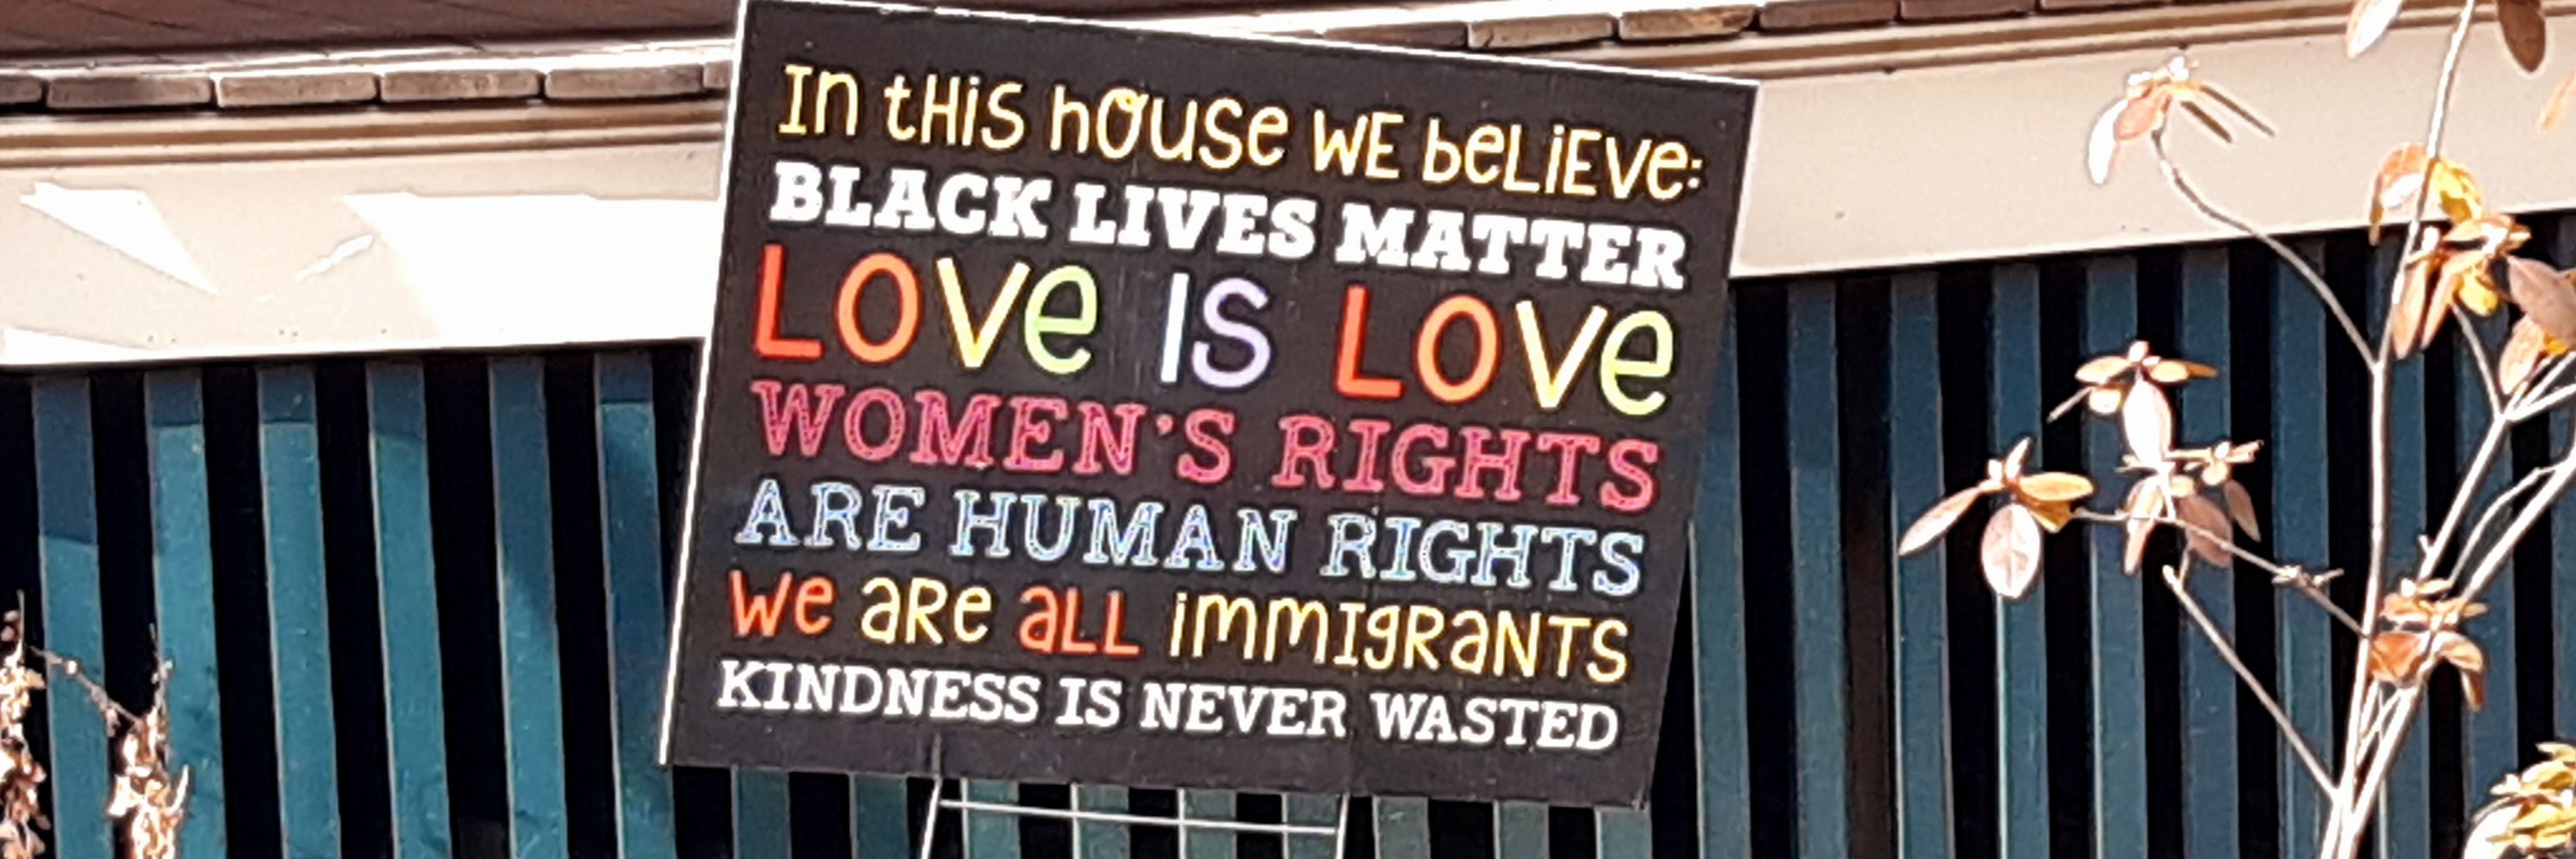 In tHiS hOUSe WE beLiEVe:
BLACK LIVES MATTER
LOVe IS LOVe
WOMEN'S RIGHTS
ARE HUMAN RIGHTS
We aRe aLL immIgRaNTS
KINDNESS IS NEVER WASTED